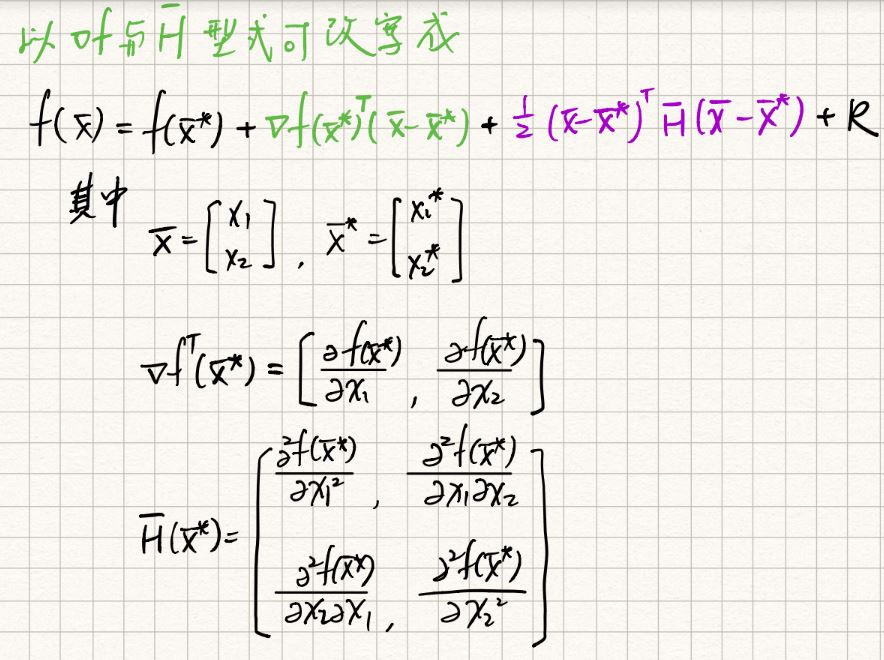 以 ∇f 与 H̅ 型式可改写成
f(x̅) = f(x̅*) + ∇f(x̅*)ᵀ(x̅-x̅*) + ½ (x̅-x̅*)ᵀ H̅ (x̅-x̅*) + R
其中
x̅ = [x₁ x₂], x̅* = [x₁* x₂*]
∇fᵀ(x̅*) = [∂f(x̅*)/∂x₁, ∂f(x̅*)/∂x₂]
H̅(x̅*) = [∂²f(x̅*)/∂x₁², ∂²f(x̅*)/∂x₁∂x₂
∂²f(x̅*)/∂x₂∂x₁, ∂²f(x̅*)/∂x₂²]